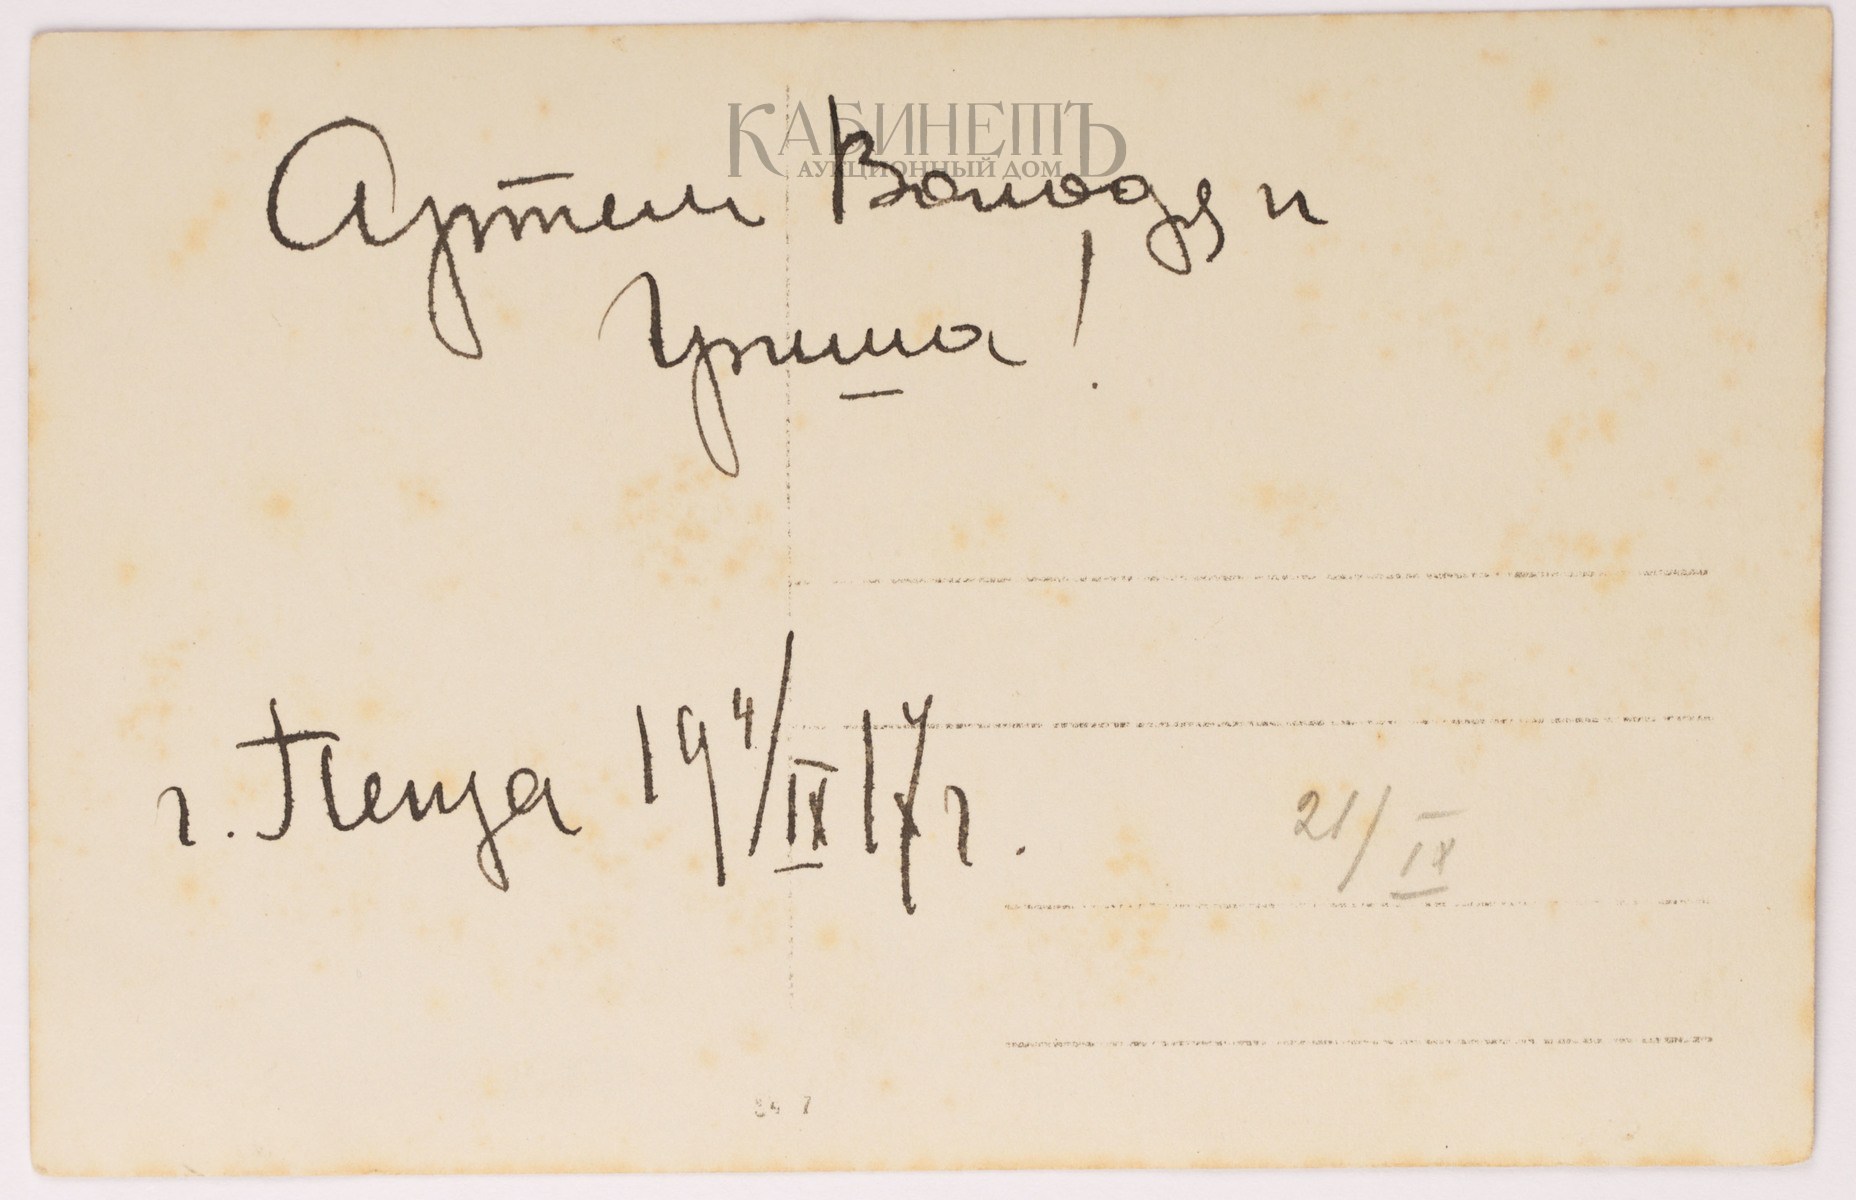 КАБИНЕТЪ
АУКЦИОННЫЙ ДОМ
Артели Володя и
Гриша!
г. Пенза 19 4/IX 17 г.
21/IX